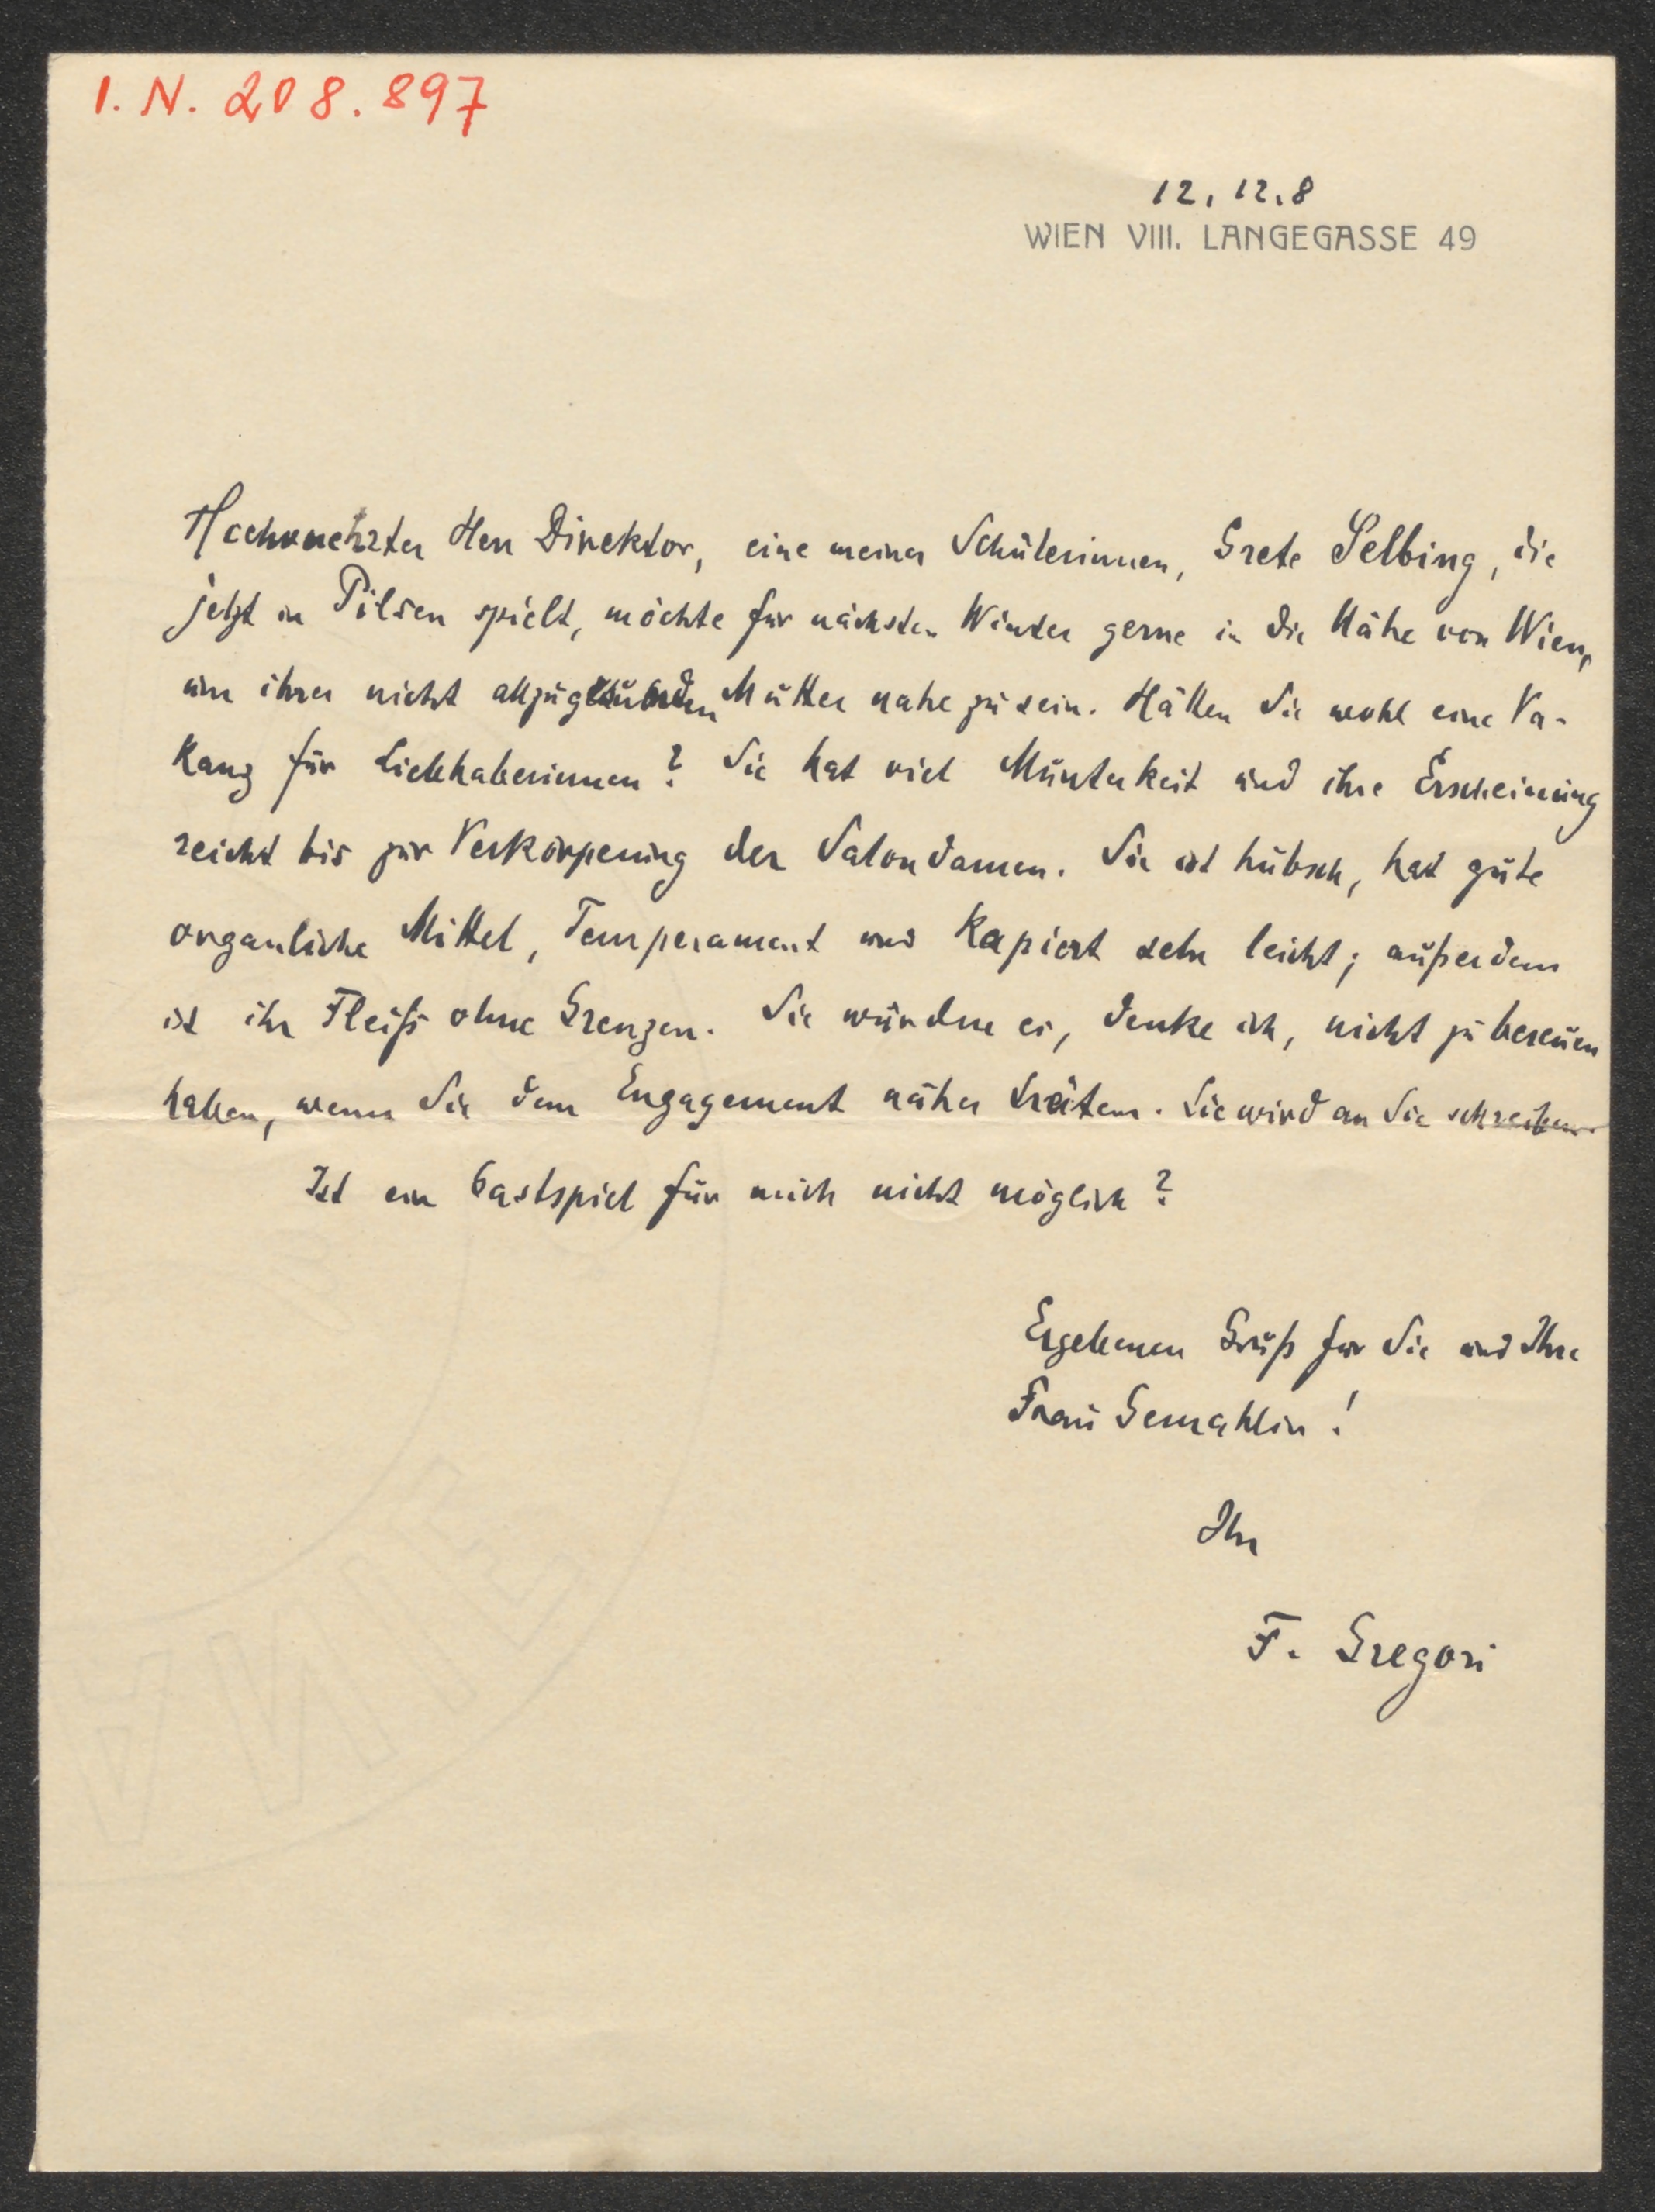 I. N. 208.897
12. 12. 8
WIEN VIII. LANGEGASSE 49
Hochverehrter Herr Direktor, eine meiner Schülerinnen, Grete Selbing, die
jetzt in Pilsen spielt, möchte für nächsten Winter gerne in die Nähe von Wien,
um ihrer nicht allzugesunden Mutter nahe zu sein. Hätten Sie wohl eine Va-
kanz für Liebhaberinnen? Sie hat viel Munterkeit und ihre Erscheinung
reicht bis zur Verkörperung der Salondamen. Sie ist hübsch, hat gute
organliche Mittel, Temperament und kapiert sehr leicht; außerdem
ist ihr Fleiß ohne Grenzen. Sie würden es, denke ich, nicht zu bereuen
haben, wenn Sie dem Engagement näher träten. Sie wird an Sie schreiben.
Ist ein Gastspiel für mich nicht möglich?
Ergebenen Gruß für Sie und Ihre
Frau Gemahlin!
Ihr
F. Gregori